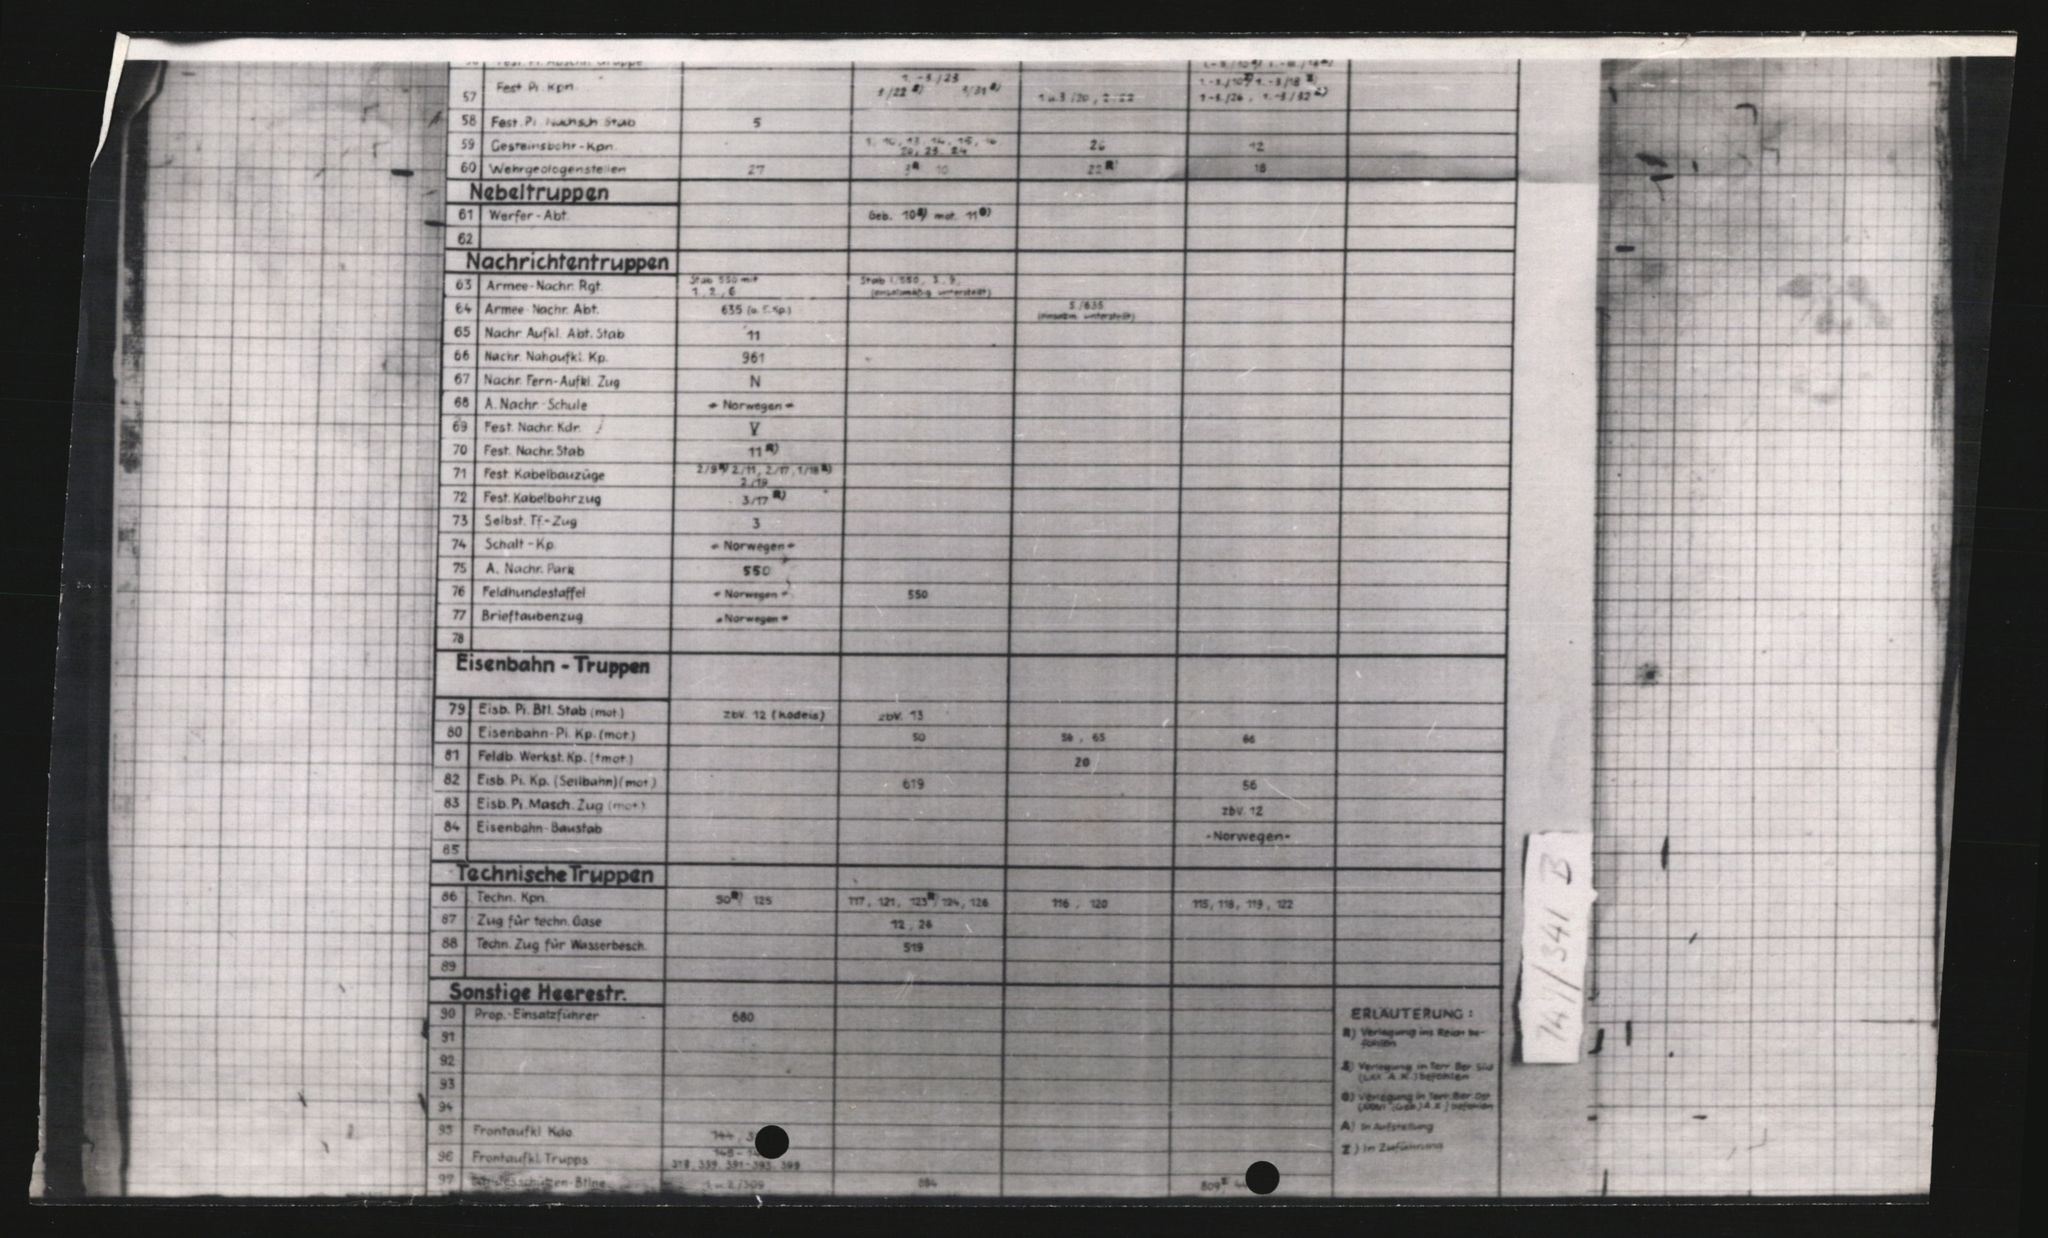 57 Fest Pi. Kpn. 1.-3./23
1 u.3/20, 2/22 1.-3./26, 1.-3/32
58 Fest. Pi. Nachsch Stab 5
59 Gesteinsbohr-Kpn. 26 12
20, 23, 24
60 Wehrgeologenstellen 27 10 22 R) 18
Nebeltruppen
61 Werfer-Abt. Geb. 10 mot. 11
62
Nachrichtentruppen
63 Armee-Nachr. Rgt. Stab 550 mit 1., 2., 6 Stab I./550, 3., 9. (einsatzmäßig unterstellt)
64 Armee-Nachr. Abt. 635 5./635 (einsatzm. unterstellt)
65 Nachr. Aufkl. Abt. Stab 11
66 Nachr. Nahaufkl. Kp. 961
67 Nachr. Fern-Aufkl. Zug N
68 A. Nachr.-Schule - Norwegen -
69 Fest. Nachr. Kdr. V
70 Fest. Nachr. Stab 11 R)
71 Fest Kabelbauzüge 2/9 R) 2/11, 2/17, 1/18 R)
2/19
72 Fest. Kabelbohrzug 3/17 R)
73 Selbst. Tf-Zug 3
74 Schalt-Kp - Norwegen -
75 A. Nachr. Park 550
76 Feldhundestaffel - Norwegen - 550
77 Brieftaubenzug - Norwegen -
78
Eisenbahn - Truppen
79 Eisb. Pi. Btl. Stab (mot.) zbV. 12 (Kodeis) zbV. 13
80 Eisenbahn-Pi. Kp. (mot.) 50 65 66
81 Feldb. Werkst. Kp. (tmot.) 20
82 Eisb. Pi. Kp. (Seilbahn) (mot.) 619 56
83 Eisb. Pi. Masch. Zug (mot.) zbV. 12
84 Eisenbahn-Baustab -Norwegen-
85
Technische Truppen
86 Techn. Kpn. 50 R) 125 117, 121, 123 R) 124, 126 116, 120 115, 118, 119, 122
87 Zug für techn. Gase 12, 26
88 Techn. Zug für Wasserbesch. 519
89
Sonstige Heerestr.
90 Prop.-Einsatzführer 680
91
92
93
94
95 Frontaufkl. Kdo.
96 Frontaufkl. Trupps
318, 359, 391-393, 399
97 1. u. 2./309
ERLÄUTERUNG:
R) Verlegung ins Reich be-
fohlen
S) Verlegung in Terr. Ber. Süd
A.K.) befohlen
O) Verlegung in Terr. Ber. Ost
(Geb.) A.K.) befohlen
A) In Aufstellung
Z) In Zuführung
B